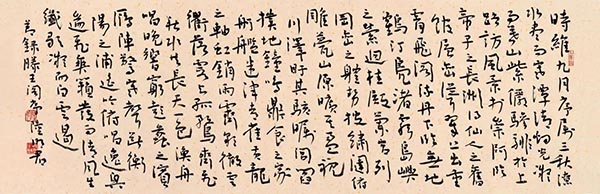 時維九月序屬三秋潦
水盡而寒潭清煙光凝
而暮山紫儼驂騑於上
路訪風景於崇阿臨
帝子之長洲得仙人之舊
館層巒聳翠上出重
霄飛閣流丹下臨無地
鶴汀鳧渚窮島嶼
之縈迴桂殿蘭宮列
岡巒之體勢披繡闥俯
雕甍山原曠其盈視
川澤盱其駭矚閭閻
撲地鐘鳴鼎食之家
舸艦迷津青雀黃龍
之軸虹銷雨霽彩徹雲
衢落霞與孤鶩齊飛
秋水共長天一色漁舟
唱晚響窮彭蠡之濱
雁陣驚寒聲斷衡
陽之浦遙吟俯暢逸興
遄飛爽籟發而清風生
纖歌凝而白雲遏
節錄滕王閣序 陸 君